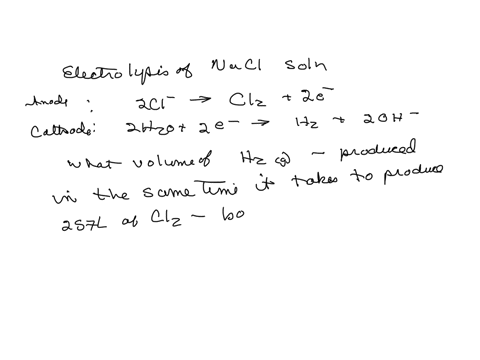 Electrolysis of NaCl soln
Anode: 2Cl⁻ → Cl₂ + 2e⁻
Cathode: 2H₂O + 2e⁻ → H₂ + 2OH⁻
What volume of H₂ (g) – produced
in the same time it takes to produce
257L of Cl₂ – bo